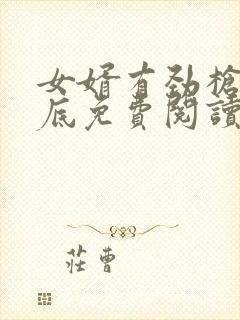 女婿有勁槍
底免費閱讀
莊曹